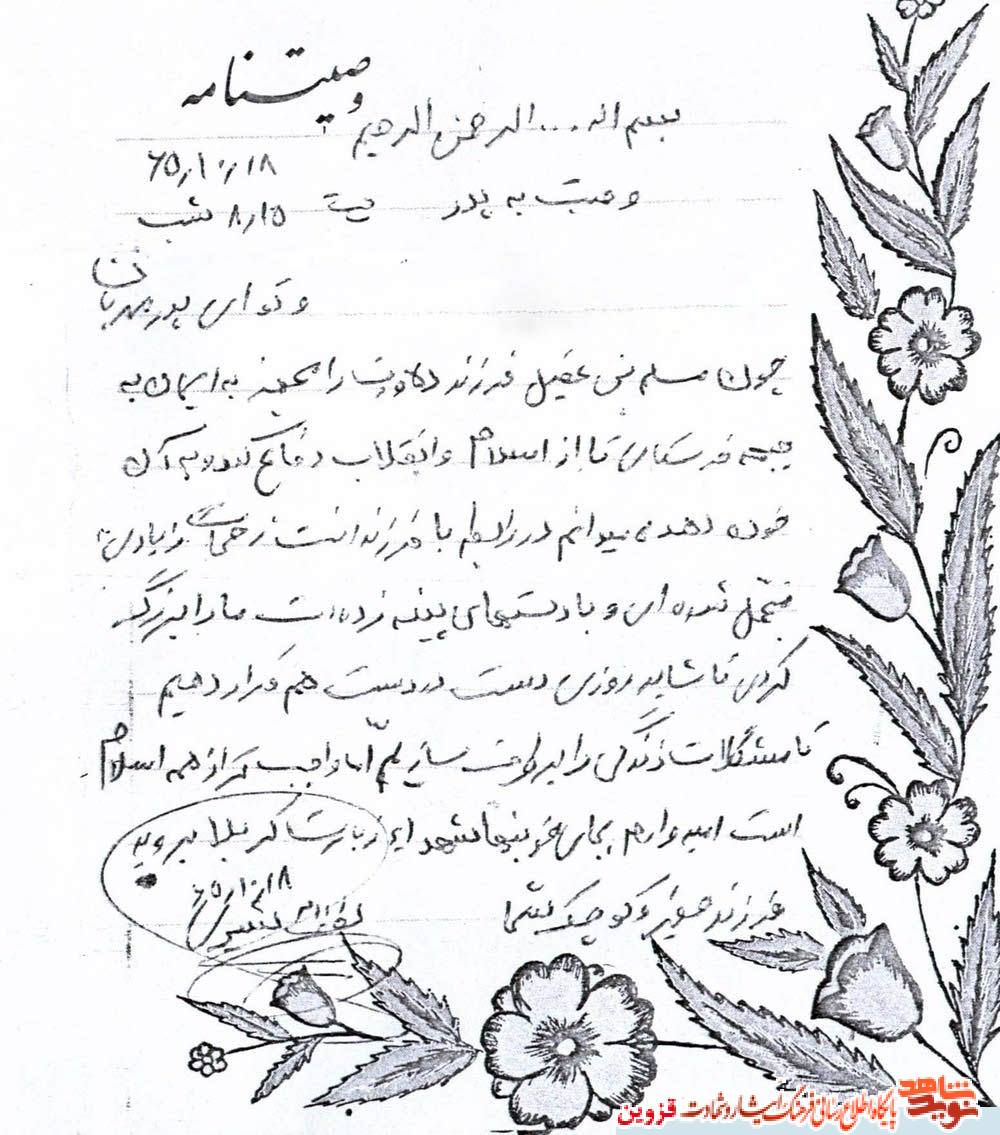 وصیتنامه
بسم ا... الرحمن الرحیم
۶۵٫۱۰٫۱۸
وصیت به پدر
۸٫۱۵ شب
و تو ای پدر مهربان
چون مسلم بن عقیل فرزند دلاورت را به ایمان به
جبهه فرستادی تا از اسلام و انقلاب دفاع کند و به آن
خون دهد میدانم در رابطه با فرزندانت زحمات زیادی
متحمل شده ای و با دستهای پینه زده ات ما را بزرگ
کردی تا شاید روزی دست در دست هم قرار دهیم
تا مشکلات زندگی را برطرف سازیم اما واجب تر از همه اسلام
است امیدوارم بجای خونبهای شهدا به زیارت کربلا بروید
فرزند حقیر و کوچک شما
۶۵٫۱۰٫۱۸
نوید شاهد
پایگاه اطلاع رسانی فرهنگ ایثار و شهادت قزوین